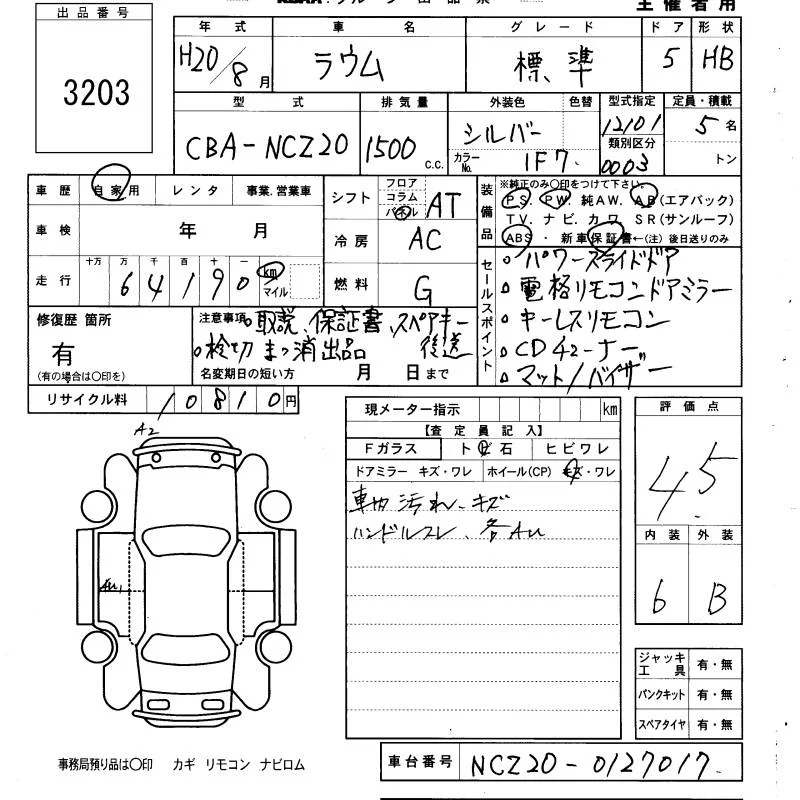 主催者用
出品番号
3203
年式 車名 グレード ドア 形状
H20/8月 ラウム 標準 5 HB
型式 排気量 外装色 色替 型式指定 定員・積載
CBA-NCZ20 1500 c.c. シルバー カラーNo. 1F7. 12101 5名
類別区分
0003 トン
車歴 自家用 レンタ 事業.営業車
車検 年 月
走行 十万 万 千 百 十 一
64190 km マイル
シフト フロア コラム パネル AT
冷房 AC
燃料 G
装備品
※純正のみ〇印をつけて下さい。
PS. PW. 純AW. AB(エアバック)
TV. ナビ. カワ SR(サンルーフ)
ABS ・ 新車保証書←(注) 後日送りのみ
セールスポイント
パワースライドドア
電格リモコンドアミラー
キーレスリモコン
CDチューナー
マット/バイザー
修復歴 箇所
有
(有の場合は〇印を)
注意事項 取説、保証書、スペアキー
後送
名変期日の短い方 月 日まで
リサイクル料 10810円
現メーター指示 km
【査定員記入】
Fガラス ト ビ 石 ヒビワレ
ドアミラー キズ・ワレ ホイール(CP) キズ・ワレ
車内 汚れ、キズ
ハンドルスレ、各AU
A2
AU1
評価点
4.5
内装 外装
6 B
ジャッキ工具 有・無
パンクキット 有・無
スペアタイヤ 有・無
事務局預り品は〇印 カギ リモコン ナビロム
車台番号 NCZ20-0127017.